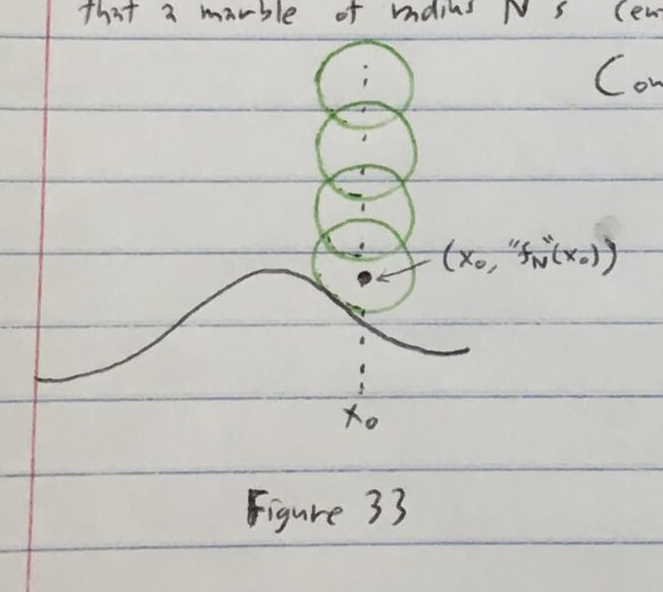 that a marble of radius N's cen
Con
(x₀, "f_N"(x₀))
x₀
Figure 33